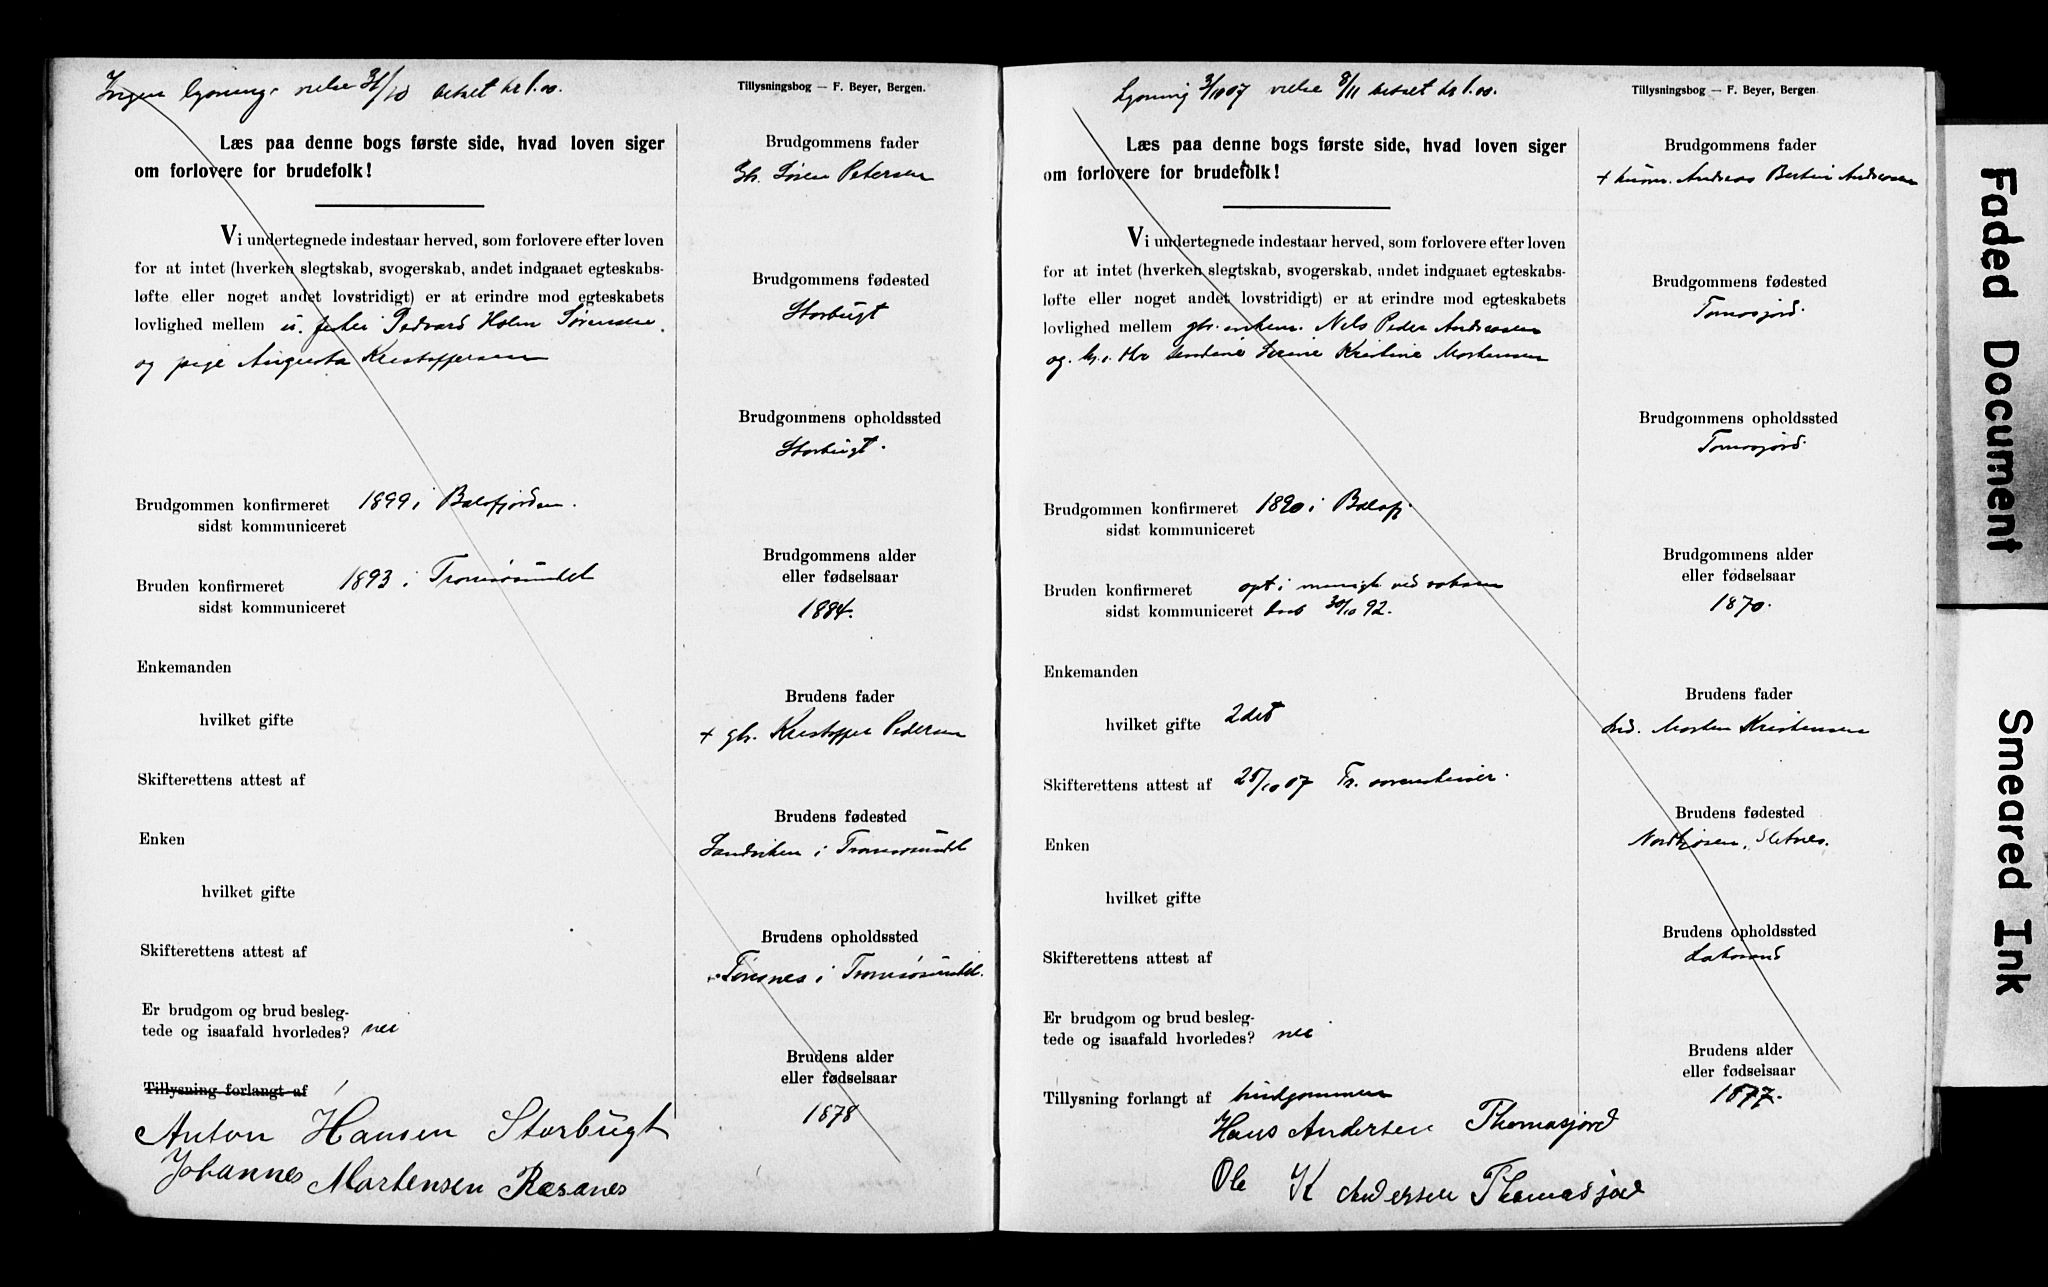 Ingen lysning, vielse 31/10 betalt kr 1.00.
Tillysningsbog — F. Beyer, Bergen.
Læs paa denne bogs første side, hvad loven siger
om forlovere for brudefolk!
Vi undertegnede indestaar herved, som forlovere efter loven
for at intet (hverken slegtskab, svogerskab, andet indgaaet egteskabs-
løfte eller noget andet lovstridigt) er at erindre mod egteskabets
lovlighed mellem u. fisker Pedvard Holm Sørensen.
og pige Augusta Kristoffersen
Brudgommen konfirmeret 1899 i Balsfjorden.
sidst kommuniceret
Bruden konfirmeret 1893 i Tromsøsundet
sidst kommuniceret
Enkemanden
hvilket gifte
Skifterettens attest af
Enken
hvilket gifte
Skifterettens attest af
Er brudgom og brud besleg-
tede og isaafald hvorledes? nei
Tillysning forlangt af
Anton Hansen Storbugt
Johannes Mortensen Ræsanes
Brudgommens fader
Gb. Søren Petersen
Brudgommens fødested
Storbugt
Brudgommens opholdssted
Storbugt.
Brudgommens alder
eller fødselsaar
1884.
Brudens fader
+ gbr. Kristoffer Pedersen
Brudens fødested
Sandviken i Tromsøsundet
Brudens opholdssted
Tønsnes i Tromsøsundet.
Brudens alder
eller fødselsaar
1878
Lysning 3/11 07 vielse 8/11 betalt kr 1.00.
Tillysningsbog — F. Beyer, Bergen.
Læs paa denne bogs første side, hvad loven siger
om forlovere for brudefolk!
Vi undertegnede indestaar herved, som forlovere efter loven
for at intet (hverken slegtskab, svogerskab, andet indgaaet egteskabs-
løfte eller noget andet lovstridigt) er at erindre mod egteskabets
lovlighed mellem gbr. enkem. Nils Peder Andreasen
og Serine Kristine Mortensen
Brudgommen konfirmeret 1890 i Balsfj.
sidst kommuniceret
Bruden konfirmeret opt. i menigh. ved voksen
sidst kommuniceret daab 30/10 92.
Enkemanden
hvilket gifte 2det
Skifterettens attest af 25/10 07 Tr. sorenskriver.
Enken
hvilket gifte
Skifterettens attest af
Er brudgom og brud besleg-
tede og isaafald hvorledes? nei
Tillysning forlangt af brudgommen
Hans Andersen Thomasjord
Ole K Andersen Thomasjord
Brudgommens fader
+ husm. Andreas Bertin Andreasen
Brudgommens fødested
Tomasjord.
Brudgommens opholdssted
Tomasjord.
Brudgommens alder
eller fødselsaar
1870.
Brudens fader
Morten Kristensen
Brudens fødested
Nordkjosen, Sletnes.
Brudens opholdssted
Laksvand
Brudens alder
eller fødselsaar
1877.
Faded Document
Smeared Ink